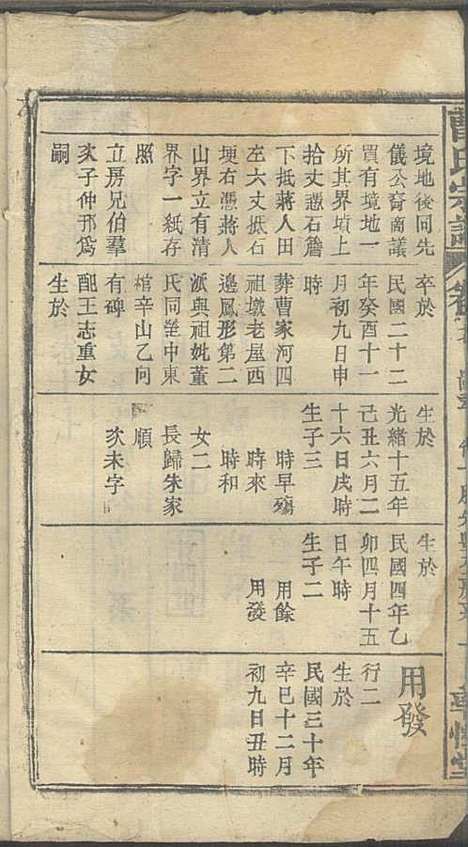 曹氏宗譜
境地後同先
儀公裔商議
買有境地一
所其界墳上
拾丈憑石簷
下抵蔣人田
左六丈抵石
埂右憑蔣人
山界立有清
界字一紙存
照
立房兄伯羣
次子仲邘為
嗣
卒於
民國二十二
年癸酉十一
月初九日申
時
葬曹家河四
祖墩老屋西
邊鳳形第二
派與祖妣董
氏同塋中東
棺辛山乙向
有碑
配王志重女
生於
生於
光緒十五年
己丑六月二
十六日戌時
生子三
時早殤
時來
時和
女二
長歸朱家
順
次未字
生於
民國四年乙
卯四月十五
日午時
生子二
用餘
用發
用發
行二
生於
民國三十年
辛巳十二月
初九日丑時